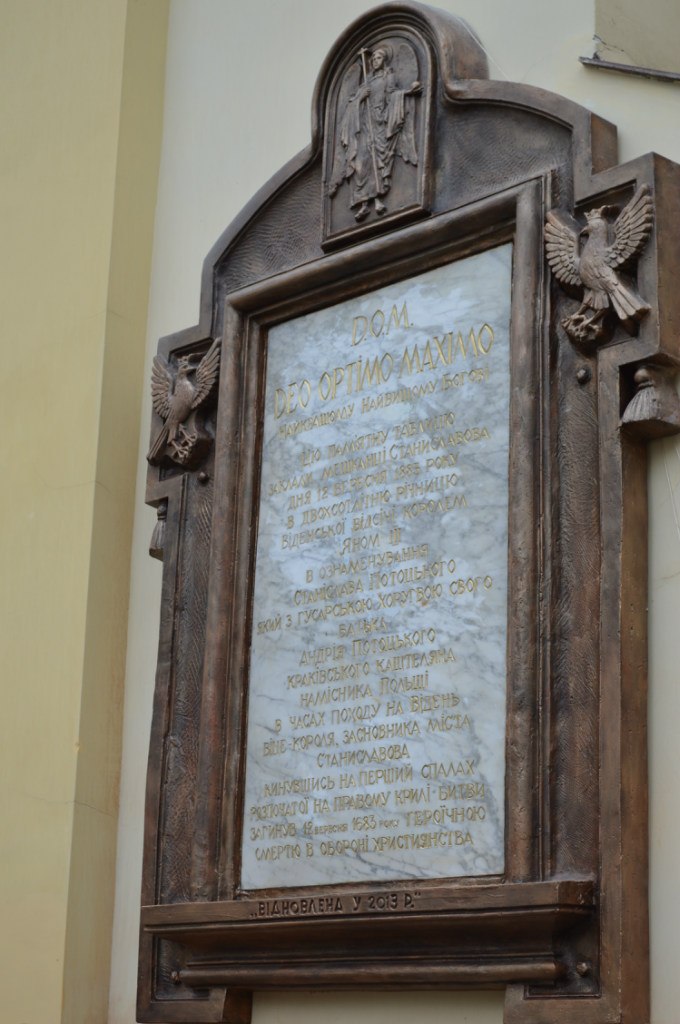 D.O.M.
DEO OPTIMO MAXIMO
НАЙКРАЩОМУ НАЙВИЩОМУ БОГОВІ
ЦЮ ПАМЯТНУ ТАБЛИЦЮ
ЗАКЛАЛИ МЕШКАНЦІ СТАНИСЛАВОВА
ДНЯ 12 ВЕРЕСНЯ 1883 РОКУ
В ДВОХСОТЛІТНЮ РІЧНИЦЮ
ВІДЕНСЬКОЇ ВІДСІЧІ КОРОЛЕМ
ЯНОМ III
В ОЗНАМЕНУВАННЯ
СТАНІСЛАВА ПОТОЦЬКОГО
ЯКИЙ З ГУСАРСЬКОЮ ХОРУГВОЮ СВОГО
БАТЬКА
АНДРІЯ ПОТОЦЬКОГО
КРАКІВСЬКОГО КАШТЕЛЯНА
НАМІСНИКА ПОЛЬЩІ
В ЧАСАХ ПОХОДУ НА ВІДЕНЬ
ВІЦЕ-КОРОЛЯ, ЗАСНОВНИКА МІСТА
СТАНИСЛАВОВА
КИНУВШИСЬ НА ПЕРШИЙ СПАЛАХ
РОЗПОЧАТОЇ НА ПРАВОМУ КРИЛІ БИТВИ
ЗАГИНУВ 12 ВЕРЕСНЯ 1683 РОКУ ГЕРОЇЧНОЮ
СМЕРТЮ В ОБОРОНІ ХРИСТИЯНСТВА
„ВІДНОВЛЕНА У 2013 Р."